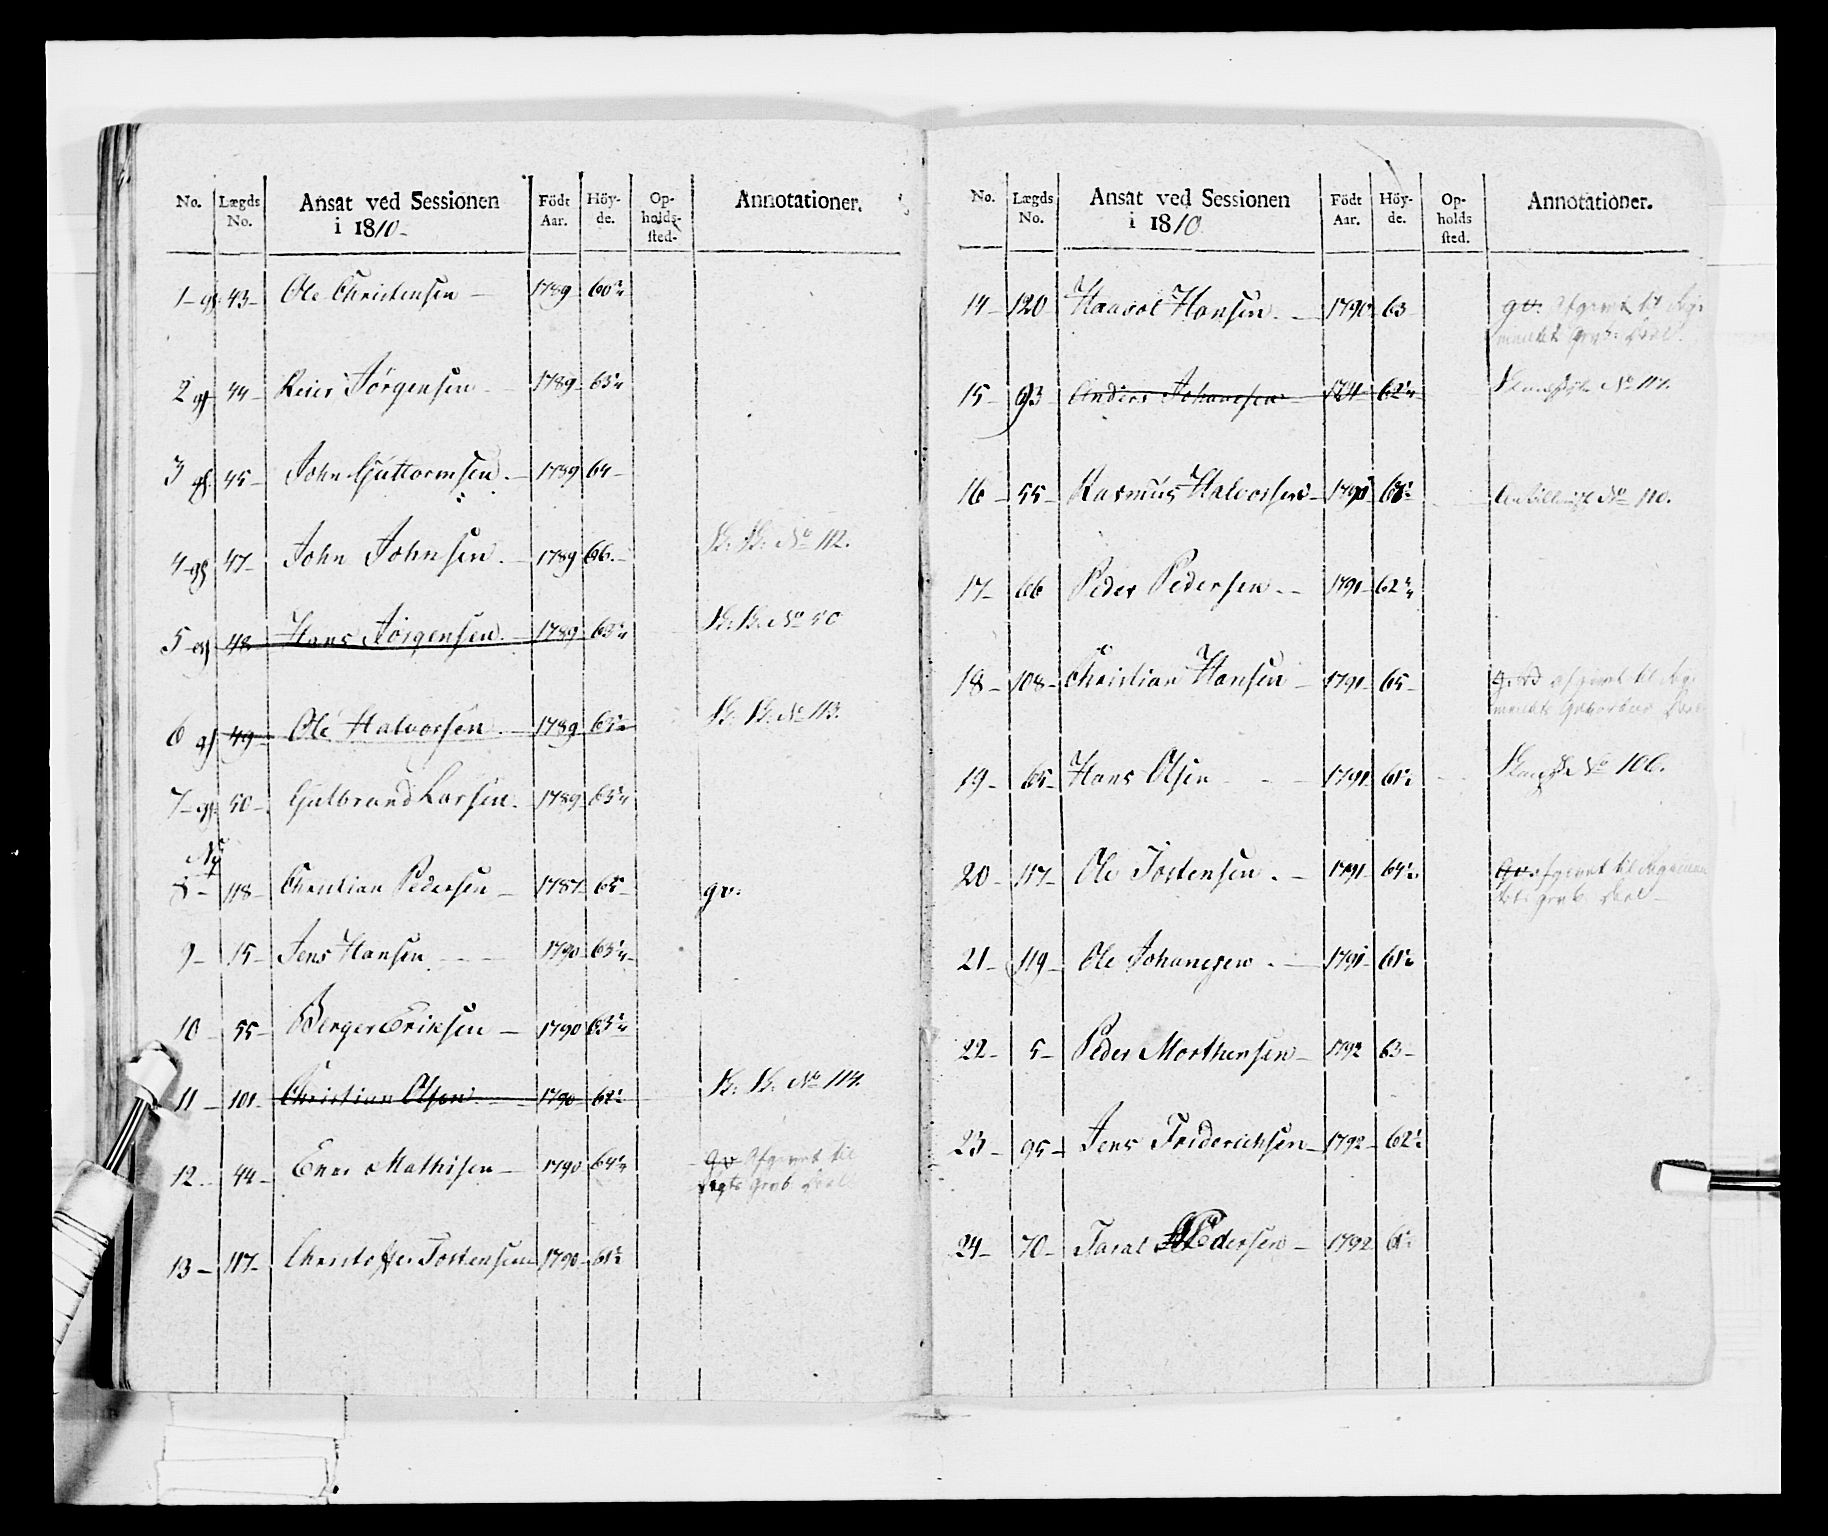 No. Lægds No. Ansat ved Sessionen i 1810 Födt Aar. Höyde. Opholds-sted. Annotationer.
1 - gf 43 - Ole Christensen - 1789 60¾
2 gf 44 - Reier Jörgensen - 1789 - 63¼
3 gf 45 - John Guttormsen - 1789 64 -
4 - gf 47 - John Johnsen - 1789 66. - K: K: No 112.
5 gf 48 Hans Jörgensen 1789 63¼ K: K: No 50
6 gf 49 Ole Halvorsen 1789 63 K: K: No 113.
7 - gf 50 - Gulbrand Larsen 1789 63¼
Ny
8 - 118 - Christian Pedersen - 1787 65 - gv:
9 - 15 - Jens Hansen - - 1790 63¼ -
10 55 - Berger Eriksen - 1790 63¼
11 - 101 - Christian Olsen - 1790 62½ K: K: No 114.
12 44 - Ener Mathisen - 1790 64¼ gv Afgivet til
Regts Grab: Deel
13 - 117 - Christoffer Tostensen 1790 61½
No. Lægds No. Ansat ved Sessionen i 1810 Födt Aar. Höyde. Opholds sted. Annotationer.
14 120 Haavol Hansen. - 1790 63 gv: Afgivet til Regi
mentets Grab: Deel.
15 - 93 Anders Johanesen 1791 62¼ No 117.
16 - 55 - Rasmus Halvorsen - 1791 No 110.
17 - 66 Peder Pedersen - - 1791 - 62¾
18 - 108 - Christian Hansen - 1791 - 65 - afgivet til Regi
mentets Deel
19 - 65 - Hans Olsen - - 1791 61½ No 106.
20 - 117 - Ole Tostensen. - 1791 64½ gv afgivet til Regimen
tets Grab: Deel -
21 - 119 - Ole Johanesen - 1791 - 61½
22 - 5 - Peder Morthensen - 1792 63 -
23 - 95 - Jens Friderichsen - 1792 - 62½
24 - 70 - Taral Pedersen - 1792 61½